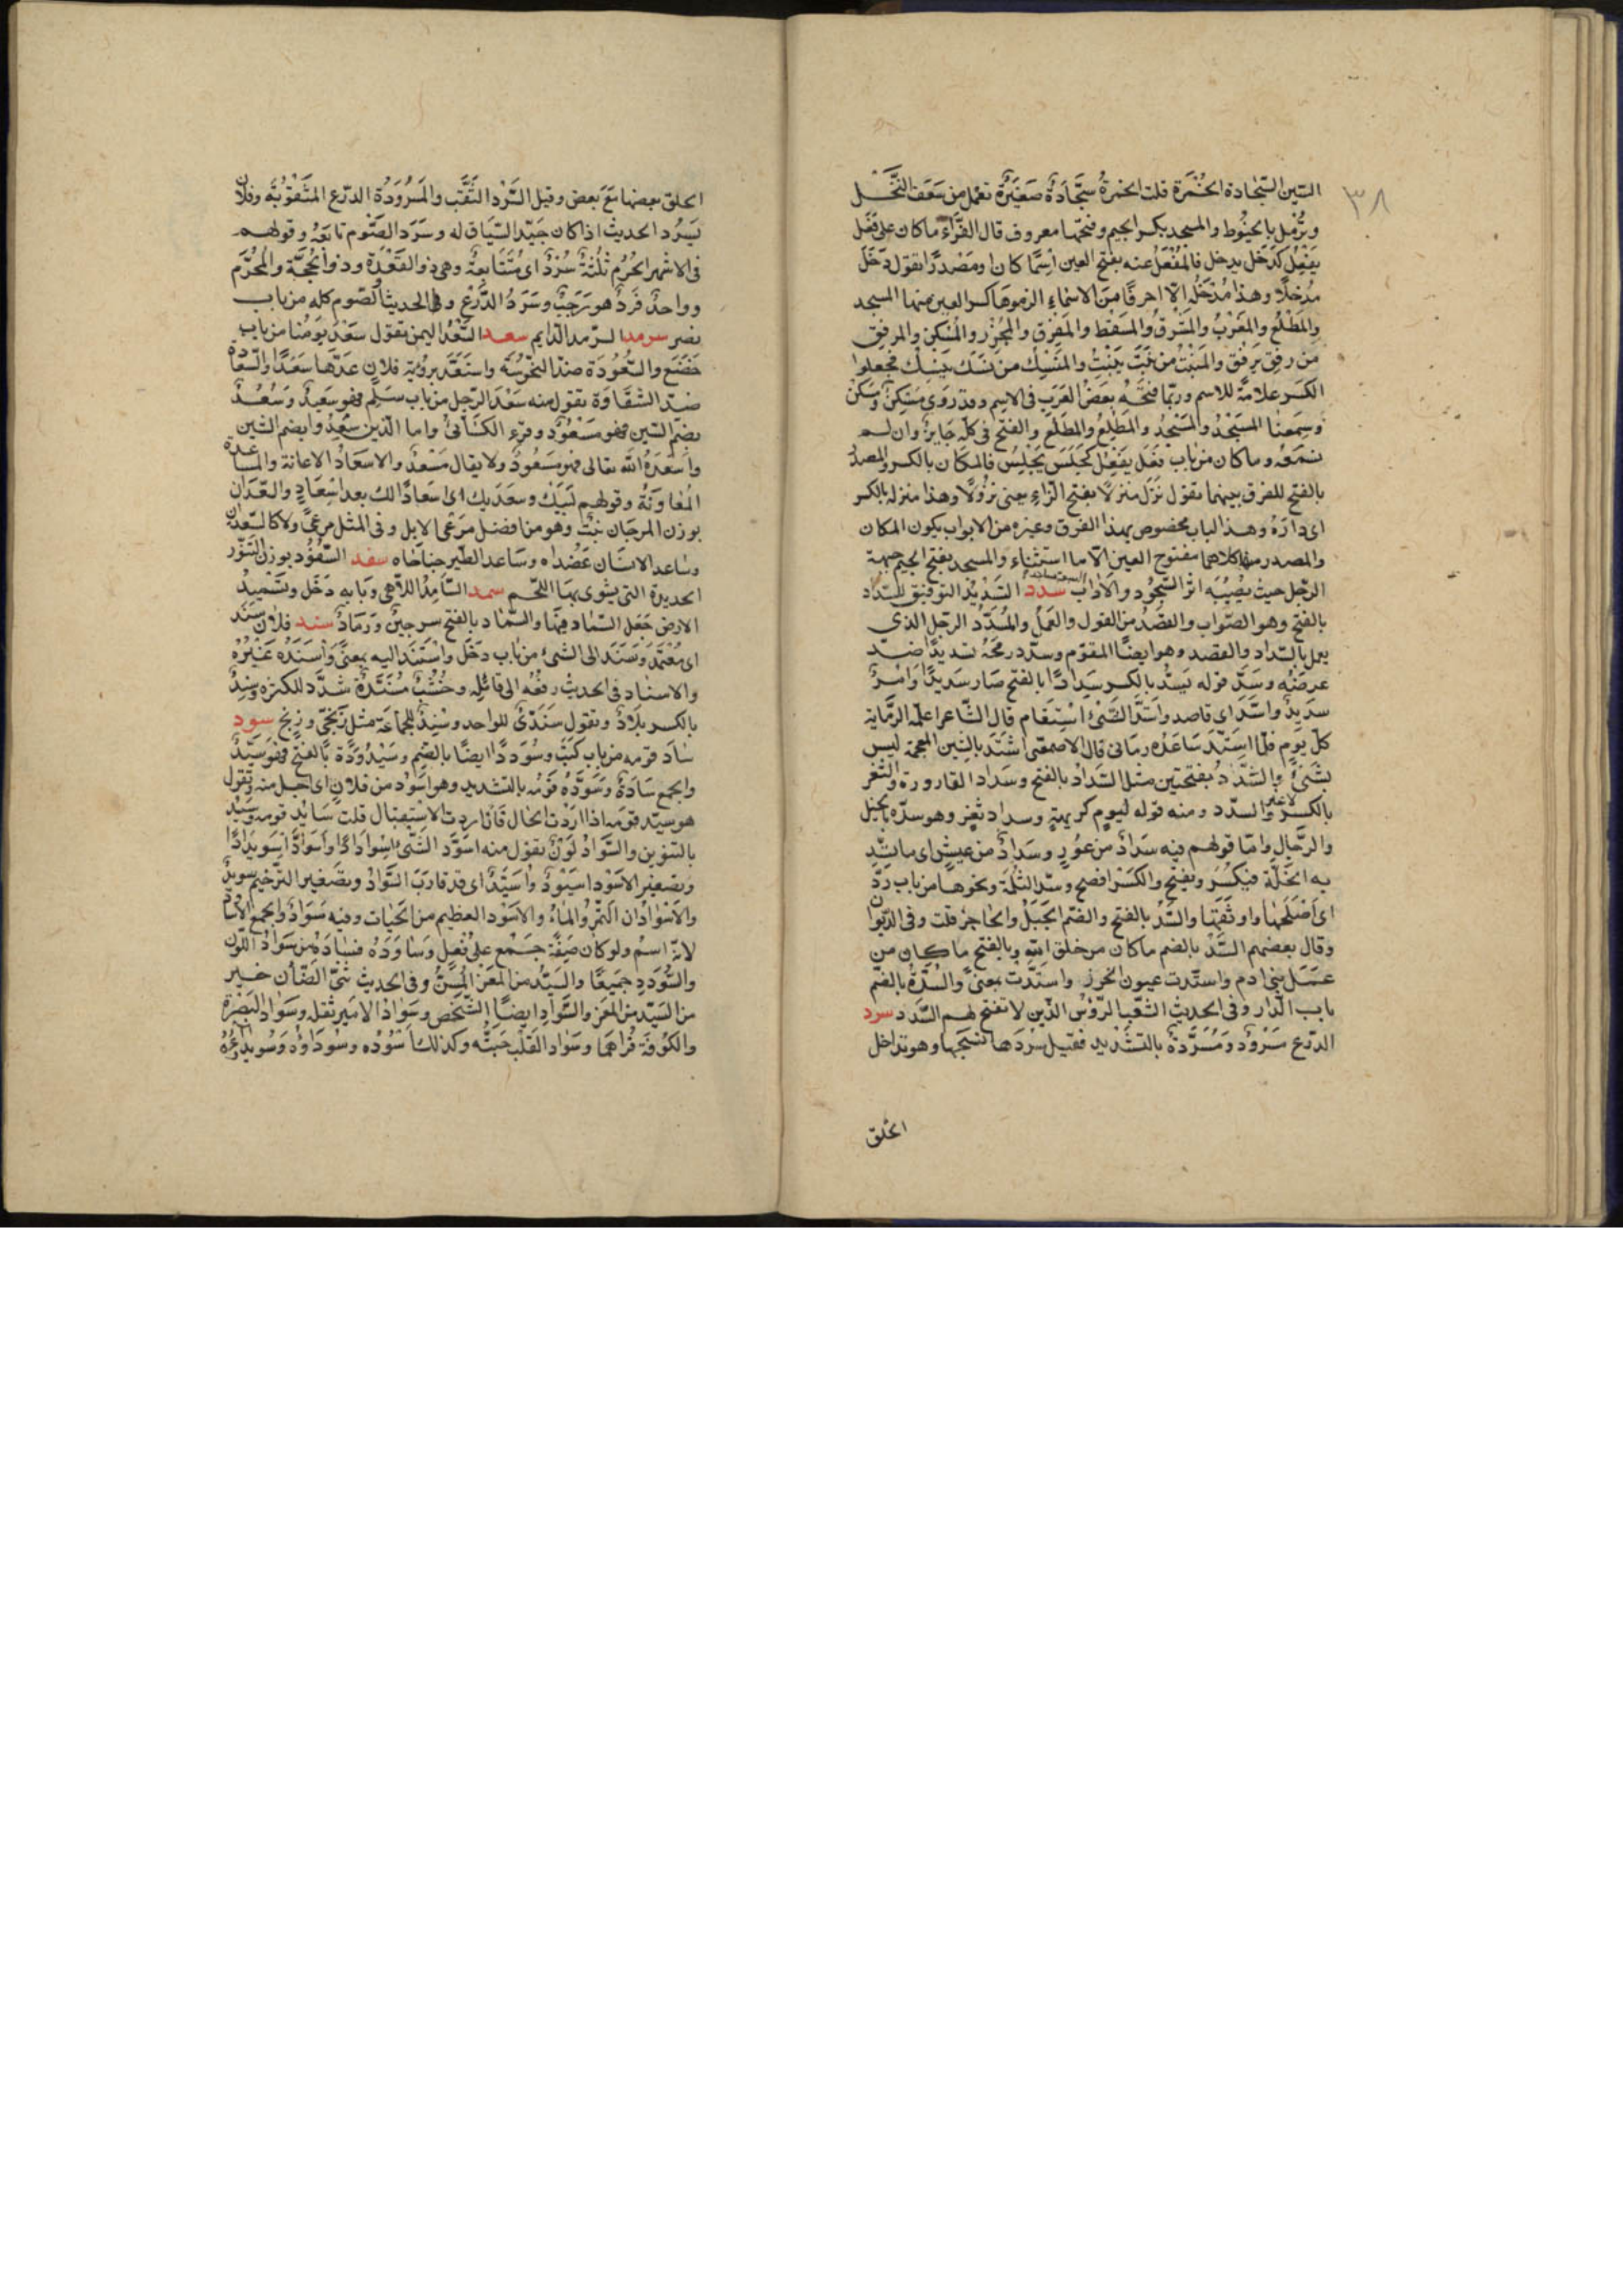 ٣٨
السّين السّجّادة الخُمْرَة قلت الخمرةُ سَجَّادَةٌ صَغيرَةٌ تعْمل من سَعَف النَّخْل
وتُرْمَل بالخُيُوط والمسجد بكسر الجيم وفتحها معروف قال الفَرَّاء ما كان على فَعَل
يَفْعُل كدَخَل يدخل فالمَفْعَل عنه بفتح العين اسْمًا كان او مَصْدَرًا تقول دَخَلَ
مَدْخلًا وهذا مَدْخَلُه الّا احرفًا من الاسْمَاءِ الزموهَا كسر العين منها المسجد
والمَطْلِعُ والمَغْرِبُ والمَشْرِقُ والمَسْقِط والمَفرِق والمَجْزِر والمَسْكِن والمرفق
من رفق يَرْفُق والمَنْبِتُ من نَبَتَ يَنْبُتُ والمَنْسِك من نَسَكَ يَنسُك فجعلوا
الكَسر علامةً للاسم وربّما فتحَهُ بَعْضُ العَرَبِ في الاسم وقد رُوي مَسْكِنٌ ومَسْكَن
وسَمِعنَا المَسْجِدُ والمَسْجَدُ والمَطْلِعُ والمَطْلَع والفتح في كلّه جَايزٌ وان لم
نسمَعْه وما كان من باب فَعَل يَفْعِل كَجَلَسَ يَجْلِسُ فالمكان بالكسر والمصدر
بالفتح للفرق بينهما تقول نَزَل منزلًا بفتح الزّاءِ يعني نزُولًا وهذا منزله بالكسر
اي دارَهُ وهذا الباب مخصوص بهذا الفرق وغيره من الابواب يكون المكان
والمصدر منه كلاهما مفتوح العين الّا ما استثناء والمسجد بفتح الجيم جبهة
الرّجل حيث يُصِيْبُه اثر السّجُود والآدَابُ السبعة مساجد سدد التَسْدِيْدُ التوفيق للسَّداد
بالفتح وهو الصّواب والقَصْدُ من القول والعَمَل والمُسَدَّد الرّجل الذي
يعمل بالسَّداد والقصد وهو ايضًا المقوّم وسدّد رمحَهُ تسديدًا ضدّ
عرضه وسَدَّ قوله يَسِدُّ بالكسر سَدَادًا بالفتح صَار سَديدًا وامْرٌ
سدَيدٌ واسَدّ اي قاصد واسْتَدَّ الشئُ اسْتقَام قال الشّاعر اعلّمه الرِّمَاية
كلّ يَوْم فلمّا استَدَّ سَاعدُه رمانى قال الاصمعى اشتَدّ بالشين المعجمة ليس
بشئٍ والسَّدَدُ بفتحتين مثل السَّدَادُ بالفتح وسَداد القارورة والثغر
بالكسر لا غير والسّدد ومنه قوله ليوم كريهةٍ وسداد ثغر وهو سدّه بالخيل
والرّجَال وامّا قولهم فيه سَدَادٌ من عَوَزٍ وسَدَادٌ من عيشٍ اى ما يُسَدّ
به الخَلّة فيكسَر ويفتح والكَسْر افصح وسدّ الثلمَة ونحوها من باب رَدّ
اى اصْلَحهَا واوثقَهَا والسَّدُّ بالفتح والضم الجَبَلُ والحَاجزُ قلت وفى الدّيوان
وقال بعضهم السُّدّ بالضم ما كان من خلق الله وبالفتح ما كان من
عمَل بنى ادم واستَدّت عيون الخرز وانسَدَّت بمعنىً والسُّدَّةُ بالضّم
باب الدّار وفى الحديث الشّعث الرّؤسُ الّذين لا تفتح لهم السُّدَد سرد
الدرْع مَسْرودَةٌ ومُسَرَّدةٌ بالتشديد فقيل سَرْدهَا نسجهَا وهو تداخل
الحلق
الحلق بعضها مَعَ بَعض وقيل السَّرْد الثقْب والمَسرُودَةُ الدرّع المَثقوبَة وفلان
يَسرُد الحديث اذا كان جَيّد السّيَاق له وسَرَد الصّوم تابعَهُ وقولهم
فى الاشهر الحُرُم ثلثةٌ سَرْدٌ اى مُتَتابعةٌ وهى ذو القَعْدَة وذو الحِجّة والمُحَرَّم
وواحدٌ فَردٌ هو رَجَبٌ وسَرَدُ الدّرْعَ وفى الحديث والصّوم كله من باب
نصر سرمد السّرمد الدّايم سعد السَّعْدُ اليمن تقول سَعَدَ يَوْمُنا من باب
خَضَعَ والسُّعُودَة ضدّ النحُوسَة واستَعَدَ برُؤية فلانٍ عَدَّهَا سَعْدًا والسَّعَادَة
ضدّ الشقَاوَة تقول منه سَعِدَ الرّجل من باب سَلِم فهو سَعيدٌ وسُعِدَ
بضمّ السّين فهو مَسْعُودٌ وقرء الكسَائى واما الّذين سُعِدُوا بضم السّين
واسْعَدَهُ الله تعالى فهو مَسعُودٌ ولا يقال مُسْعَدٌ والاسعَادُ الاعانة والمسَاعدة
المُعَاوَنَةُ وقولهم لَبّيك وسعدَيك اى اسعَادًا لك بعد اسْعَادٍ والسّعْدَان
بوزن المرجَان نبْتٌ وهو من افضل مَرْعى الابل وفى المثل مرعىً ولا كالسّعْدَان
وسَاعد الانسَان عَضُداه وسَاعد الطّير جناحَاه سفد السَّفّوُد بوزن التَّنّور
الحديدة التى يشوى بهَا اللّحم سمد السَّامِدُ اللاّهى وبَابه دَخَل وتَسْميدُ
الارض جَعْل السّمَاد فيهَا والسَّمَاد بالفتح سرجينٌ ورَمَادٌ سند فلان سَنَد
اى مُعْتمَدٌ وسَنَد الى الشئ من باب دخَل واسْتنَدَ اليه بمعنىً واسْنَدَه غَيْرُهُ
والاسنَاد فى الحديث رفْعُه الى قائله وخُشُبٌ مُسَنَّدَةٌ شدّد للكثرة وسِنْدٌ
بالكسر بلادٌ وتقول سِنْدىٌّ للواحد وسِنْدٌ للجماعَة مثل زنْجىّ وزنج سود
سَاد قومه من باب كتَب وسُودَدًا ايضًا بالضم وسَيْدُودَةً بالفتح فهو سَيّدٌ
والجمع سَادَةٌ وسَوَّدَهُ قَوْمُه بالتشديد وهو اسْوَدُ من فلانٍ اى اجلّ منه وتقول
هو سيّد قومه اذا ارَدْت الحال فاذا اردت الاستقبال قلت سَائدُ قومه وسَيّد
بالتنوين والسَّوَادُ لَوْنٌ تقول منه اسْوَدَّ الشّئ اسْودَادًا واسْوَادَّ اسْوِيدَادًا
وتصغير الاسْوَد اسَيْوِدٌ واسَيِّدٌ اى قد قارَبَ السَّوَادُ وتصْغير التّرخيم سويدٌ
والاسْوَدَان التَّمْرُ والمَاءُ والاسْوَد العظيم من الحَيات وفيه سَوَادٌ والجمع الاسَاوِدُ
لانّه اسمٌ ولو كان صِفَةً جمع على فُعْل وسَاوَدَهُ فسَادَهُ من سَوَاد اللّون
والسُّودَدِ جميعًا والسَّيّد من المَعْز المُسِنُّ وفى الحديث ثنىُّ الضّأن خير
من السَّيّد من المَعز والسَّوَاد ايضًا الشّخص وسَوَادُ الامَير ثقله وسَوَادُ البَصْرة
والكوفَة قُرَاهُمَا وسَوَاد القَلب حَبّتُه وكذلك اسْوَدُه وسَوْدَاؤُه وسُويدَاؤُهُ